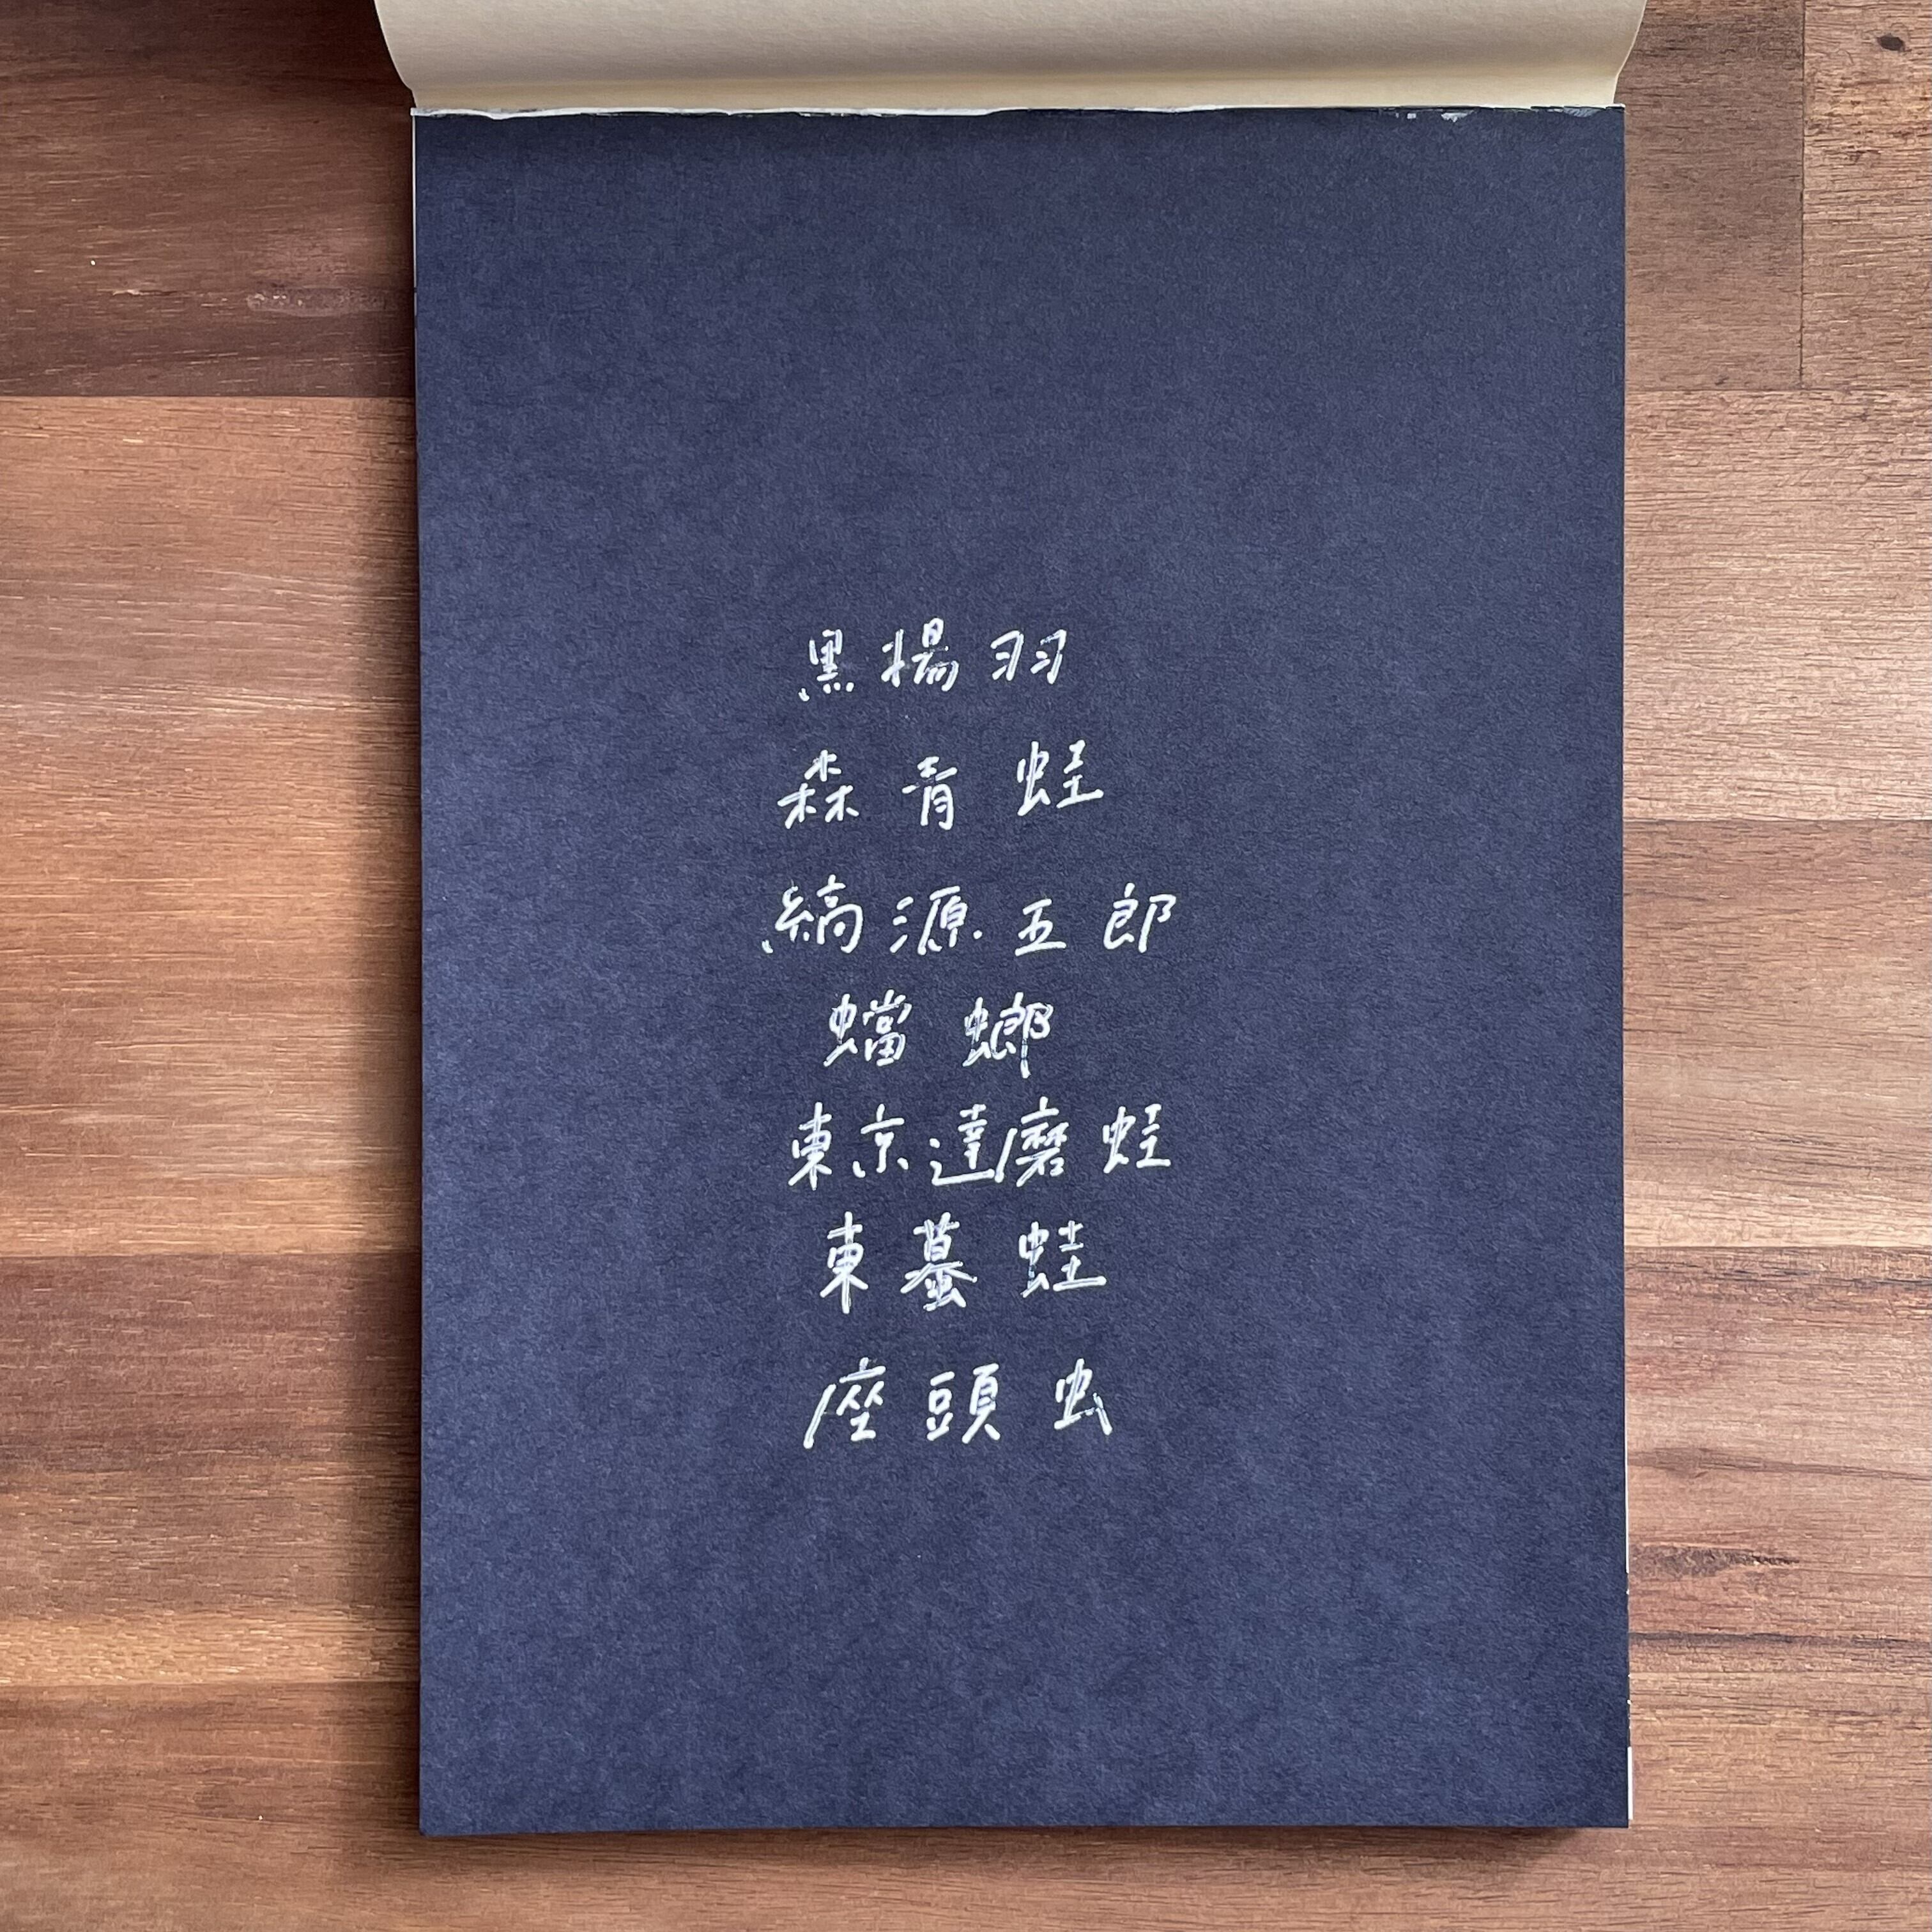 黒揚羽
森青蛙
縞源五郎
蟷螂
東京達磨蛙
東蟇蛙
座頭虫